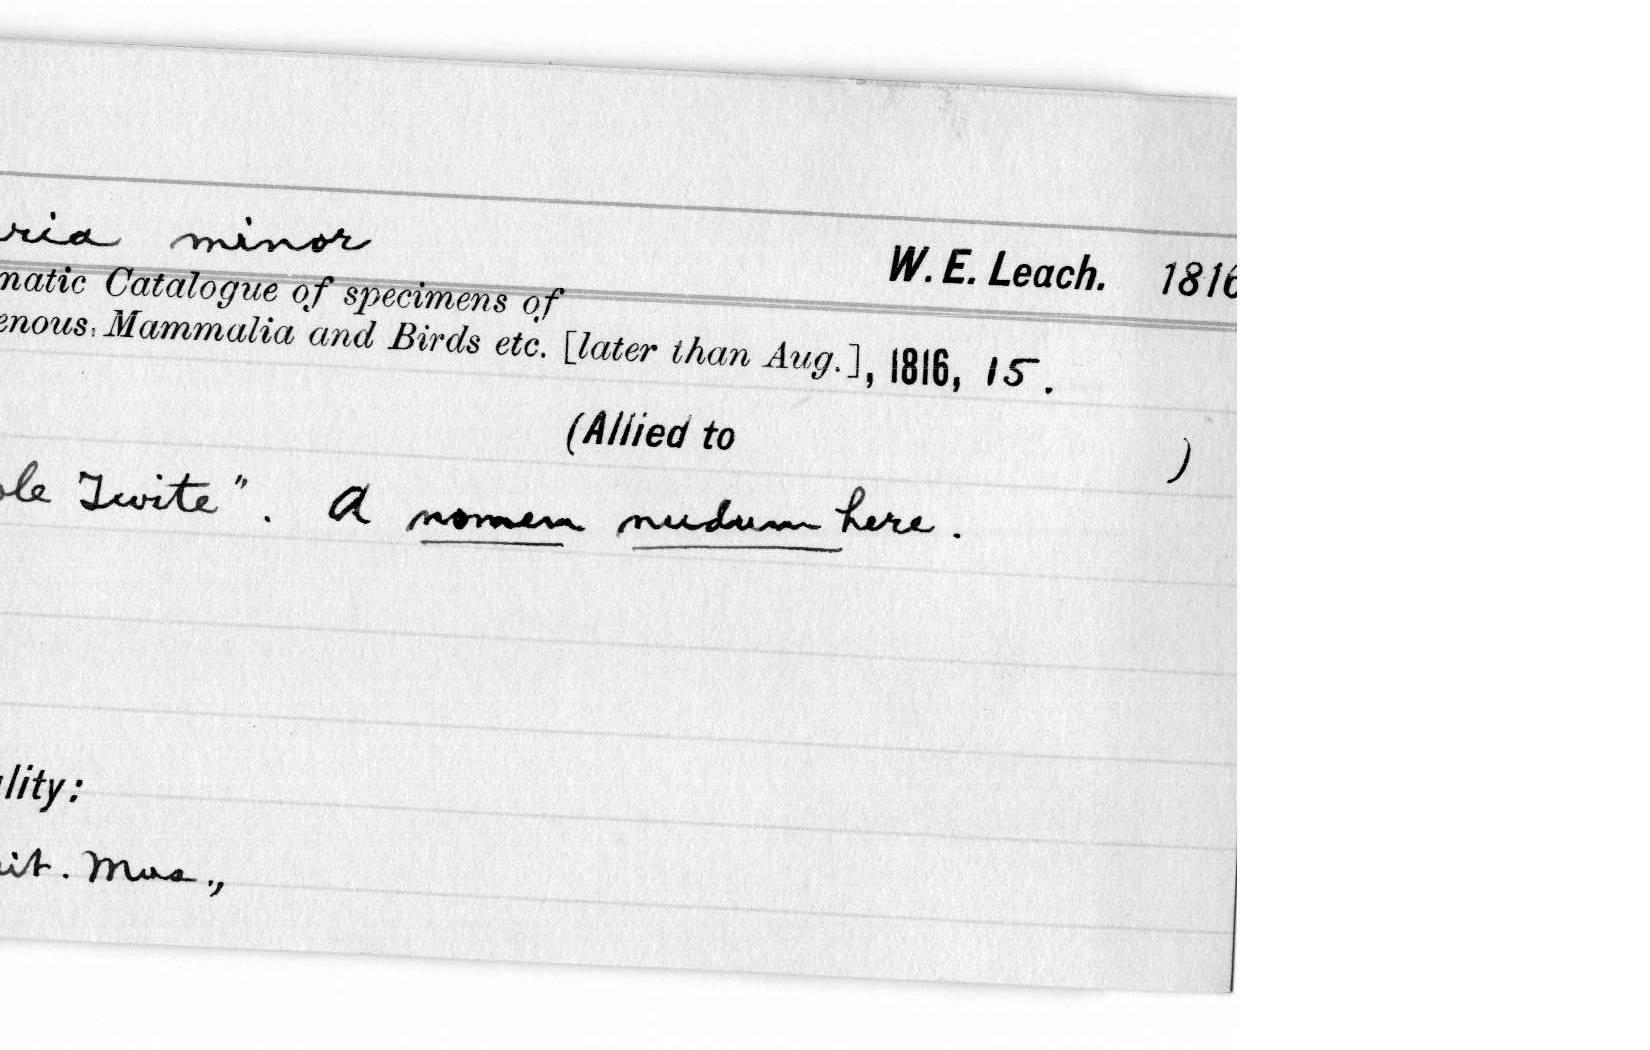 ria minor
W. E. Leach. 1816
matic Catalogue of specimens of
enous, Mammalia and Birds etc. [later than Aug.], 1816, 15.
(Allied to )
ole Twite". A nomen nudum here.
lity:
it. Mus.,